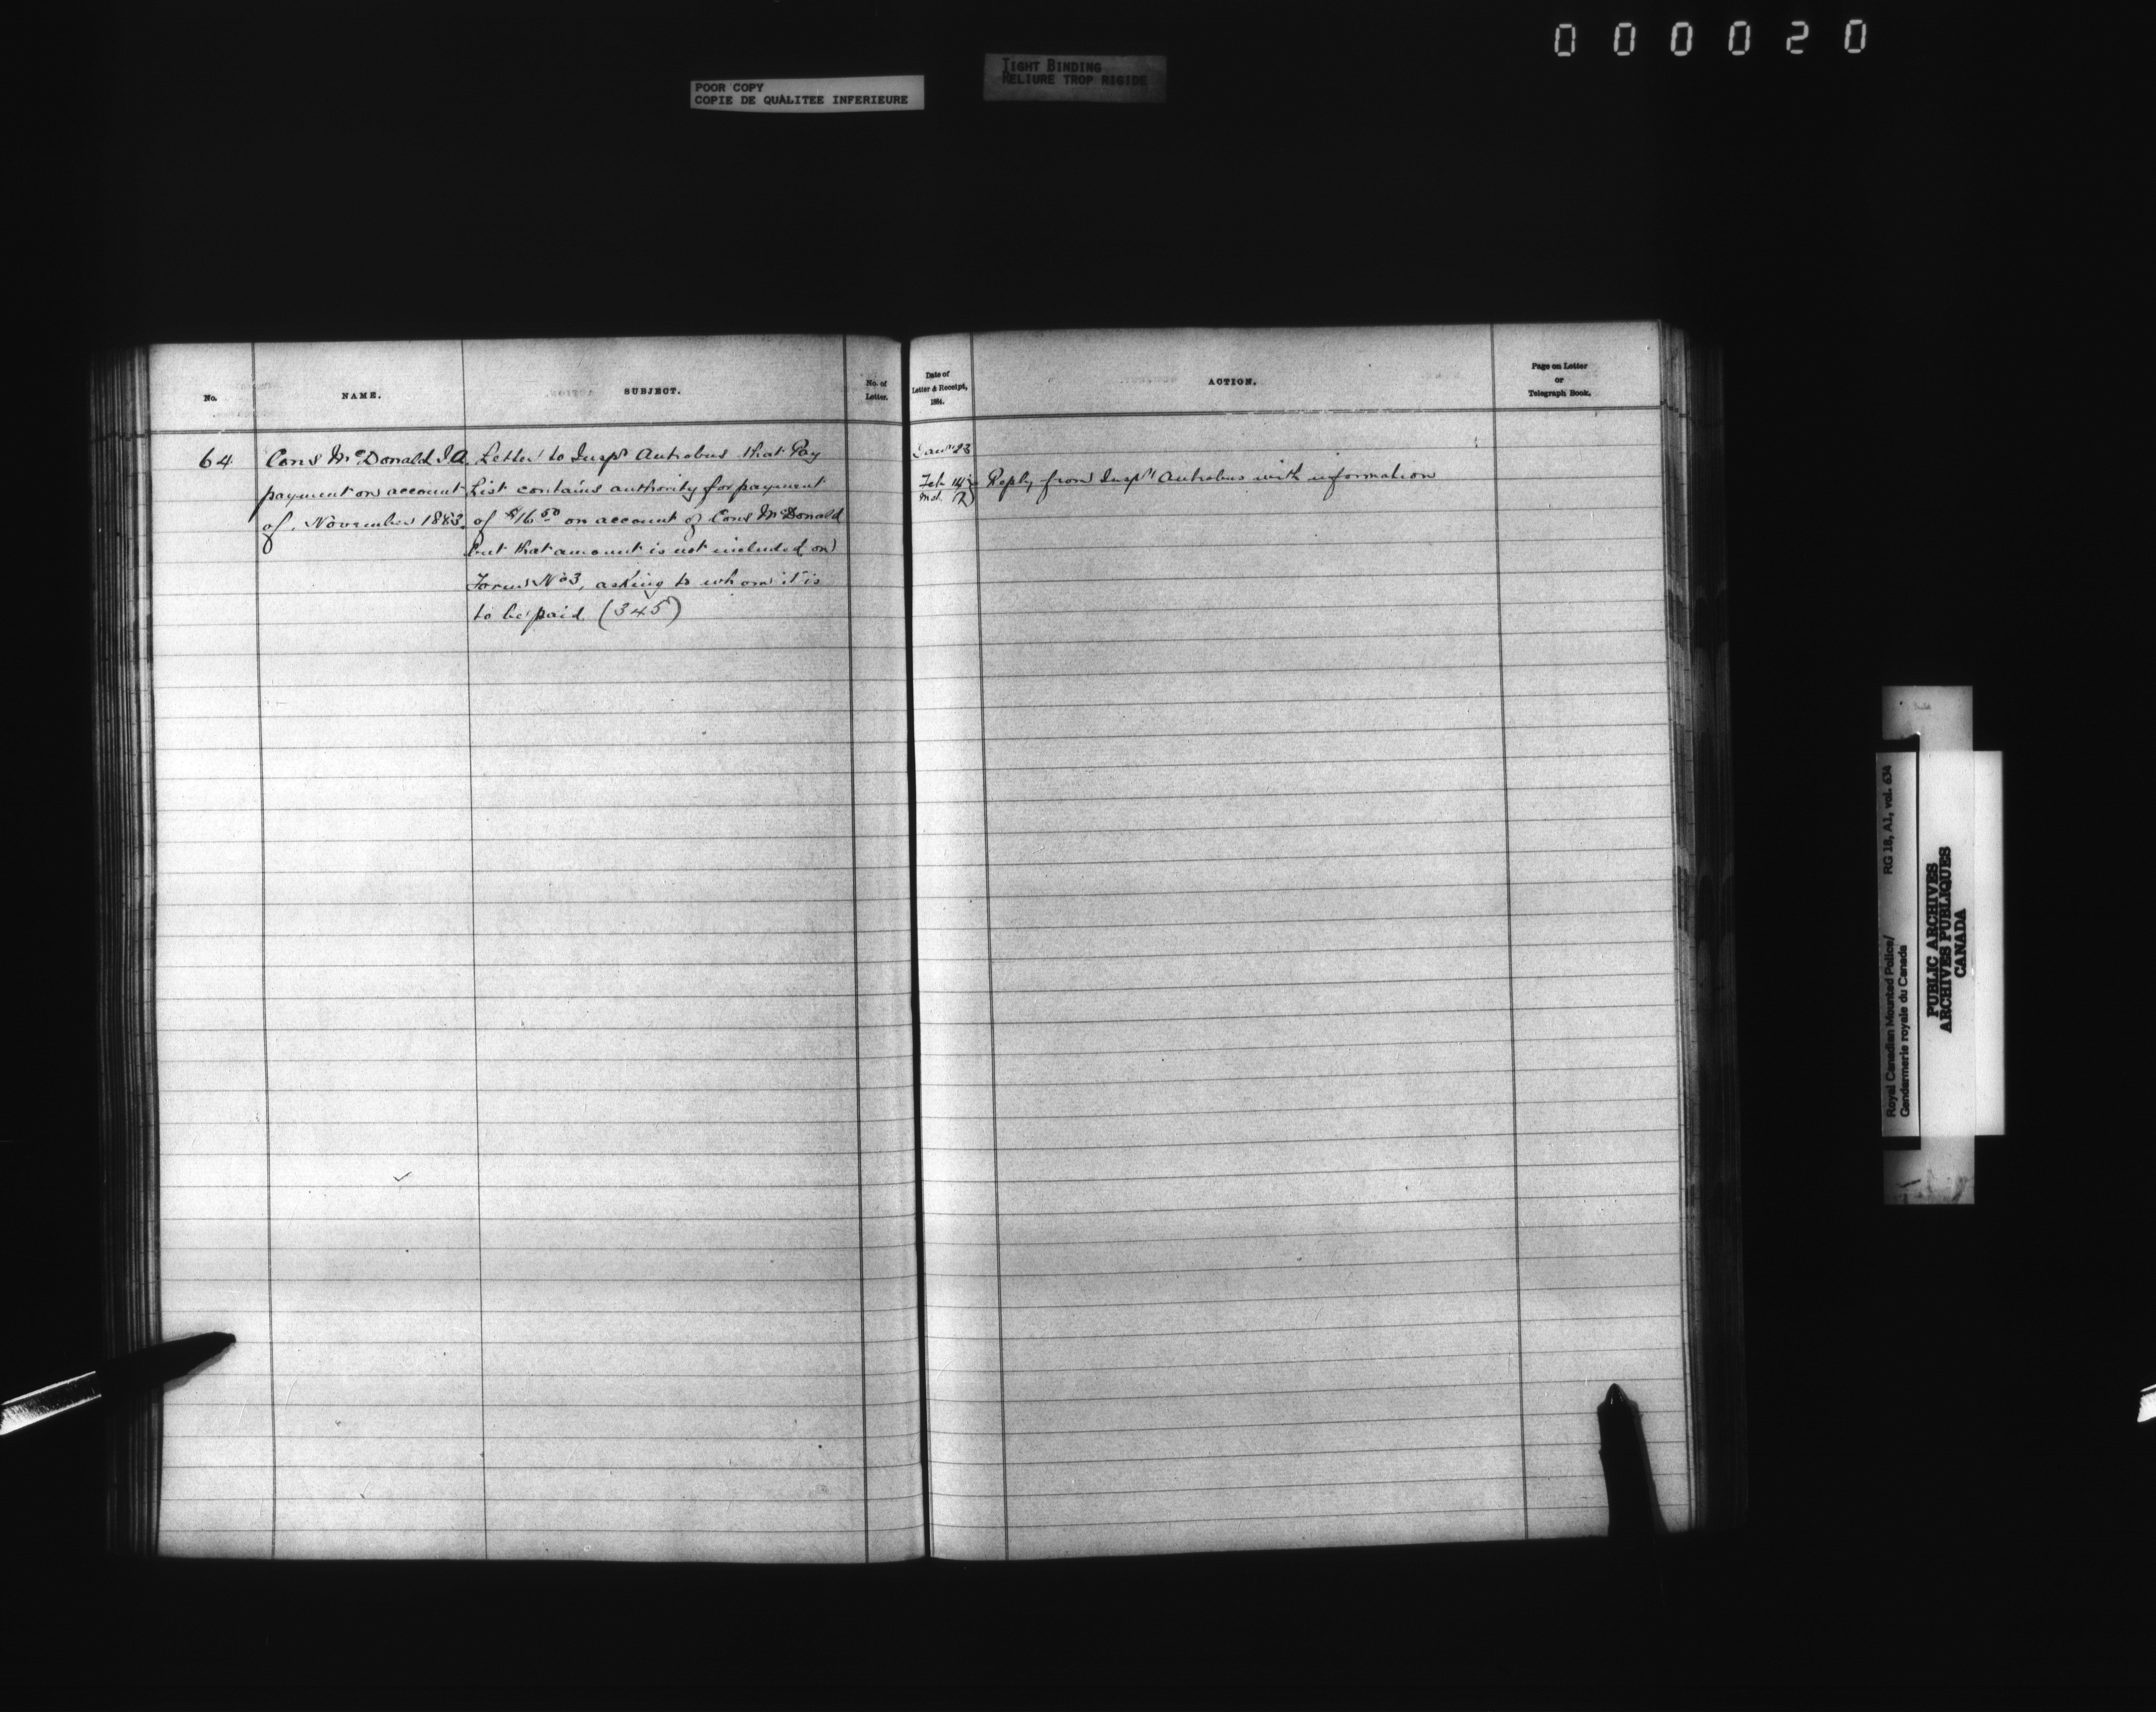 000020
TIGHT BINDING
RELIURE TROP RIGIDE
POOR COPY
COPIE DE QUALITEE INFERIEURE
No.
NAME.
SUBJECT.
No. of
Letter.
64
Cons McDonald J.A.
payment on account
of November 1883.
Letter to Inspr Antrobus that Pay
List contains authority for payment
of $16 50 on account of Cons McDonald
but that amount is not included on
Form No 3, asking to whom it is
to be paid (345)
Date of
Letter & Receipt,
1884.
ACTION.
Page on Letter
or
Telegraph Book.
Jany 23
Feb 14
Reply from Inspr Antrobus with information
Royal Canadian Mounted Police/
Gendarmerie royale du Canada
RG 18, A1, vol. 634
PUBLIC ARCHIVES
ARCHIVES PUBLIQUES
CANADA